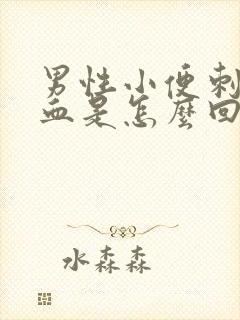 男性小便刺
血是怎麼回
水森森